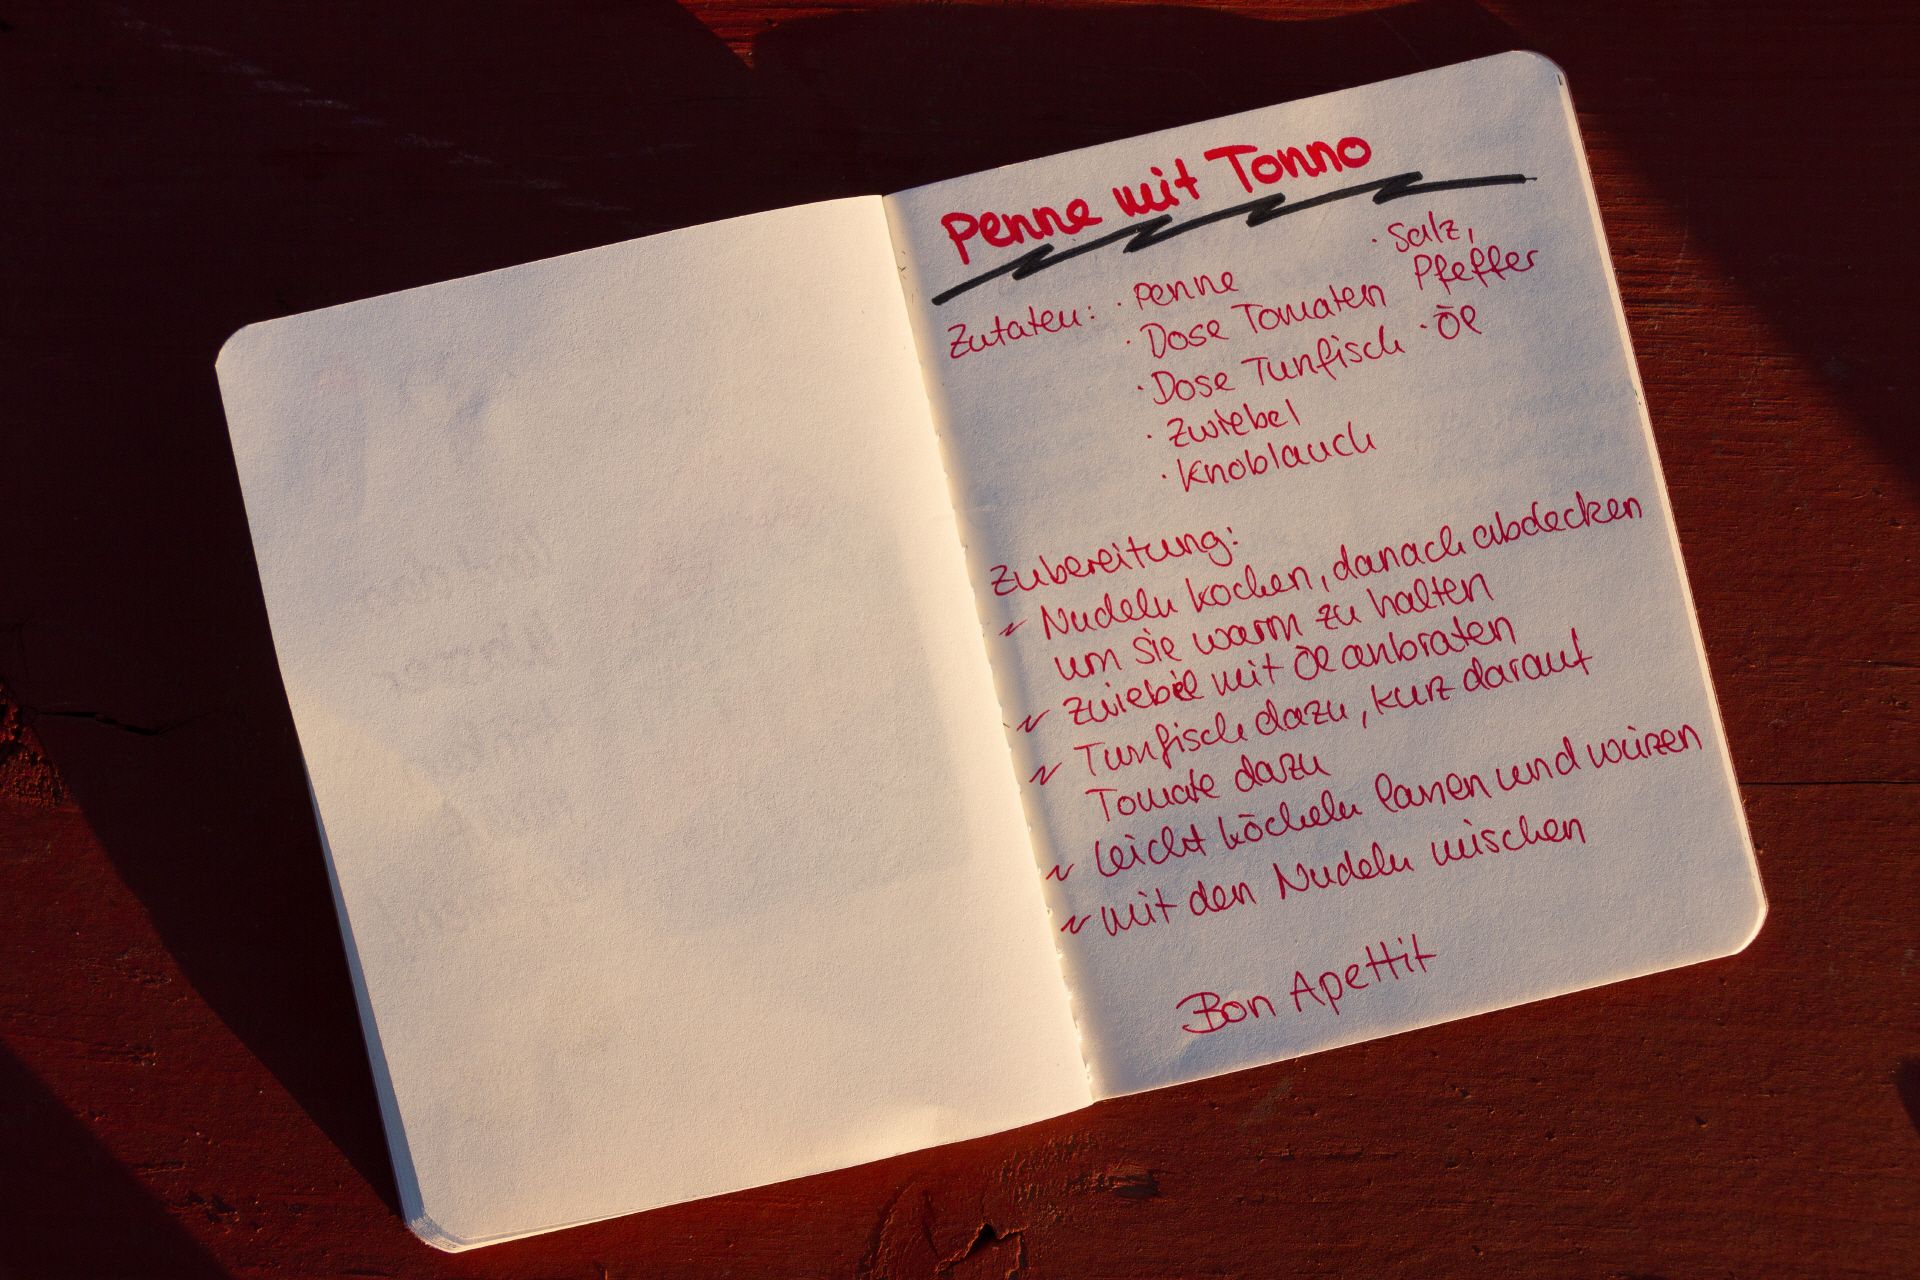 Penne mit Tonno
Zutaten: · Penne
· Dose Tomaten
· Dose Tunfisch
· Zwiebel
· Knoblauch
· Salz,
Pfeffer
· Öl
Zubereitung:
~ Nudeln kochen, danach abdecken
um sie warm zu halten
~ Zwiebel mit Öl anbraten
~ Tunfisch dazu, kurz darauf
Tomate dazu
~ leicht köcheln lassen und würzen
~ mit den Nudeln mischen
Bon Apettit